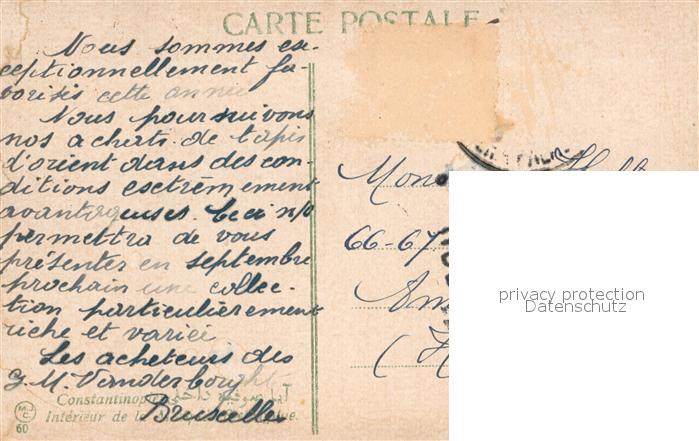 CARTE POSTALE
Nous sommes ex-
ceptionnellement fa-
vorisés cette année
Nous poursuivons
nos achats de tapis
d'orient dans des con-
ditions esctrèmement
avantageuses. Ceci n/s
permettra de vous
présenter en septembre
prochain une collec-
tion particulièrement
riche et variée
Les acheteurs des
G. M. Vanderborght
Bruxelles
Constantinople
Intérieur de la
M.J.C.
60
Mons
66-67
Am
(H
privacy protection
Datenschutz